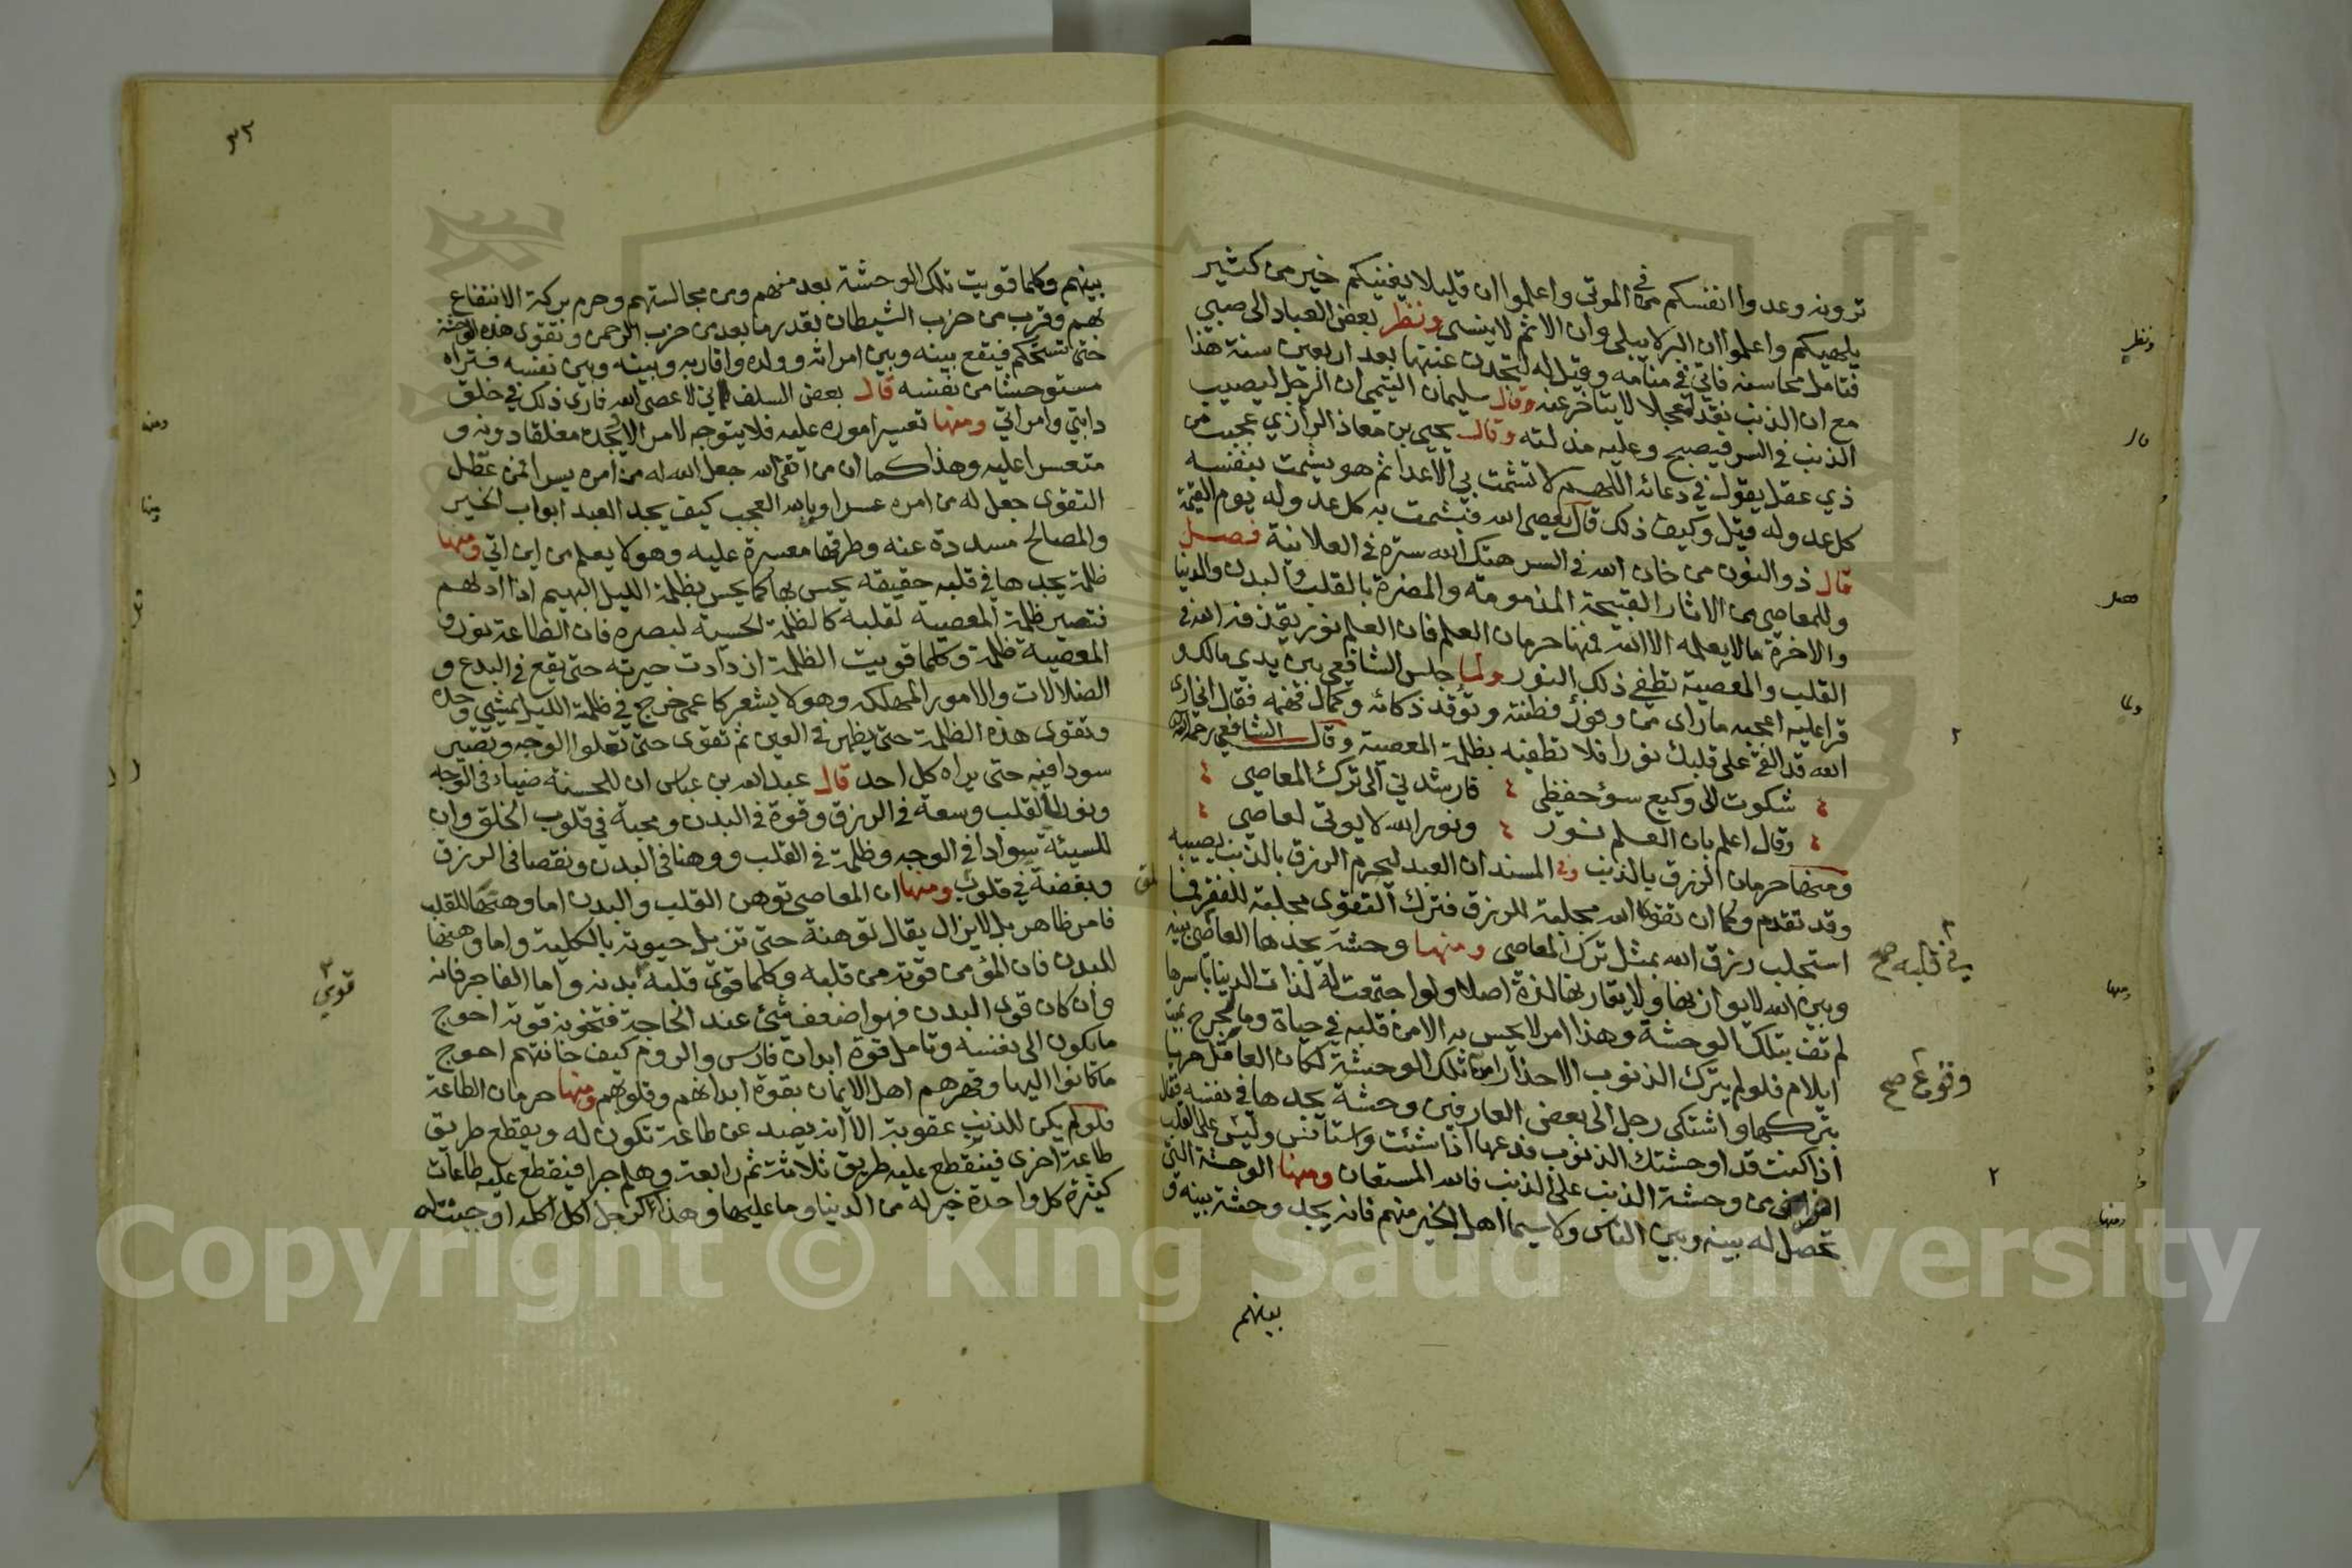 ترونه وعدوا انفسكم من في الموتى واعلموا ان قليلا يغنيكم خير من كثير
يلهيكم واعلموا ان البر لا يبلى وان الاثم لا ينسى ونظر بعض العباد الى صبي
فتامل محاسنه فاتي في منامه وقيل له لتجدن غبتها بعد اربعين سنة هذا
مع ان الذنب نقدا معجلا لا يتاخر عنه وقال سليمان التيمي ان الرجل ليصيب
الذنب في السر فيصبح وعليه مذلته وقال يحيى بن معاذ الرازي عجبت من
ذي عقل يقول في دعائه اللهم لا تشمت بي الاعدا ثم هو يشمت بنفسه
كل عدو له قيل وكيف ذلك قال يعصي الله فيشمت به كل عدو له يوم القيمة
قال ذو النون من خان الله في السر هتك الله ستره في العلانية فصل
وللمعاصي من الاثار القبيحة المذمومة والمضرة بالقلب والبدن والدنيا
والاخرة مالا يعلمه الا الله فمنها حرمان العلم فان العلم نور يقذفه الله في
القلب والمعصية تطفي ذلك النور ولما جلس الشافعي بين يدي مالك و
قرا عليه اعجبه ما راى من وفور فطنته وتوقد ذكائه وكمال فهمه فقال اني ارى
الله قد القى على قلبك نورا فلا تطفيه بظلمة المعصية وقال الشافعي رحمه الله
شكوت الى وكيع سوء حفظي فارشدني الى ترك المعاصي
وقال اعلم بان العلم نور ونور الله لا يوتى لعاصي
ومنها حرمان الرزق بالذنب وفي المسند ان العبد ليحرم الرزق بالذنب يصيبه
وقد تقدم وكما ان تقوى الله مجلبة للرزق فترك التقوى مجلبة للفقر فما
استجلب رزق الله بمثل ترك المعاصي ومنها وحشة يجدها العاصي بينه
وبين الله لا يوازنها ولا يقاربها لذة اصلا ولو اجتمعت له لذات الدنيا باسرها
لم تف بتلك الوحشة وهذا امر لا يحس به الا من قلبه في حياة وما لجرح بميت
ايلام فلو لم يترك الذنوب الا حذارا من تلك الوحشة لكان العاقل حريا
بتركها واشتكى رجل الى بعض العارفين وحشة يجدها في نفسه فقال
اذا كنت قد اوحشتك الذنوب فدعها اذا شئت واستانس وليس على القلب
من وحشة الذنب على الذنب فالله المستعان ومنها الوحشة التي
تحصل له بينه وبين الناس ولا سيما اهل الخير منهم فانه يجد وحشة بينه و
بينهم
في قلبه صح
وقوع صح
ونظر
قال
فصل
ولما
ومنها
ومنها
٣٣
بينهم وكلما قويت تلك الوحشة بعد منهم ومن مجالستهم وحرم بركة الانتفاع
بهم وقرب من حزب الشيطان بقدر ما بعد من حزب الرحمن وتقوى هذه الوحشة
حتى تستحكم فيقع بينه وبين امراته وولده واقاربه وبينه وبين نفسه فتراه
مستوحشا من نفسه قال بعض السلف اني لاعصي الله فارى ذلك في خلق
دابتي وامراتي ومنها تعسير اموره عليه فلا يتوجه لامر الا يجده مغلقا دونه و
متعسرا عليه وهذا كما ان من اتقى الله جعل الله له من امره يسرا فمن عطل
التقوى جعل له من امره عسرا ويالله العجب كيف يجد العبد ابواب الخير
والمصالح مسددة عنه وطرقها معسرة عليه وهو لا يعلم من اين اتي ومنها
ظلمة يجدها في قلبه حقيقة يحس بها كما يحس بظلمة الليل البهيم اذا ادلهم
فتصير ظلمة المعصية لقلبه كالظلمة الحسية لبصره فان الطاعة نور و
المعصية ظلمة وكلما قويت الظلمة ازدادت حيرته حتى يقع في البدع و
الضلالات والامور المهلكة وهو لا يشعر كاعمى خرج في ظلمة الليل يمشي وحده
وتقوى هذه الظلمة حتى يظهر في العين ثم تقوى حتى تعلوا الوجه وتصير
سوادا فيه حتى يراه كل احد قال عبد الله بن عباس ان للحسنة ضياء في الوجه
ونورا في القلب وسعة في الرزق وقوة في البدن ومحبة في قلوب الخلق وان
للسيئة سوادا في الوجه وظلمة في القلب ووهنا في البدن ونقصا في الرزق
وبغضة في قلوب ومنها ان المعاصي توهن القلب والبدن اما وهنها للقلب
فامر ظاهر بل لا يزال يقال توهنه حتى تزيل حيوته بالكلية واما وهنها
للبدن فان المؤمن قوته من قلبه وكلما قوي قلبه بدنه واما الفاجر فانه
وان كان قوي البدن فهو اضعف شئ عند الحاجة فتخونه قوته احوج
ما يكون الى نفسه وتامل قوة ابدان فارس والروم كيف خانتهم احوج
ما كانوا اليها وقهرهم اهل الايمان بقوة ابدانهم وقلوبهم ومنها حرمان الطاعة
فلو لم يكن للذنب عقوبة الا انه يصد عن طاعة تكون له ويقطع طريق
طاعة اخرى فينقطع عليه طريق ثلاثة ثم رابعة وهلم جرا فينقطع عليه طاعات
كثيرة كل واحدة خير له من الدنيا وما عليها وهذا كرجل اكل اكلة اوجبت له
قوي
ومنه
ومنها
Copyright © King Saud University